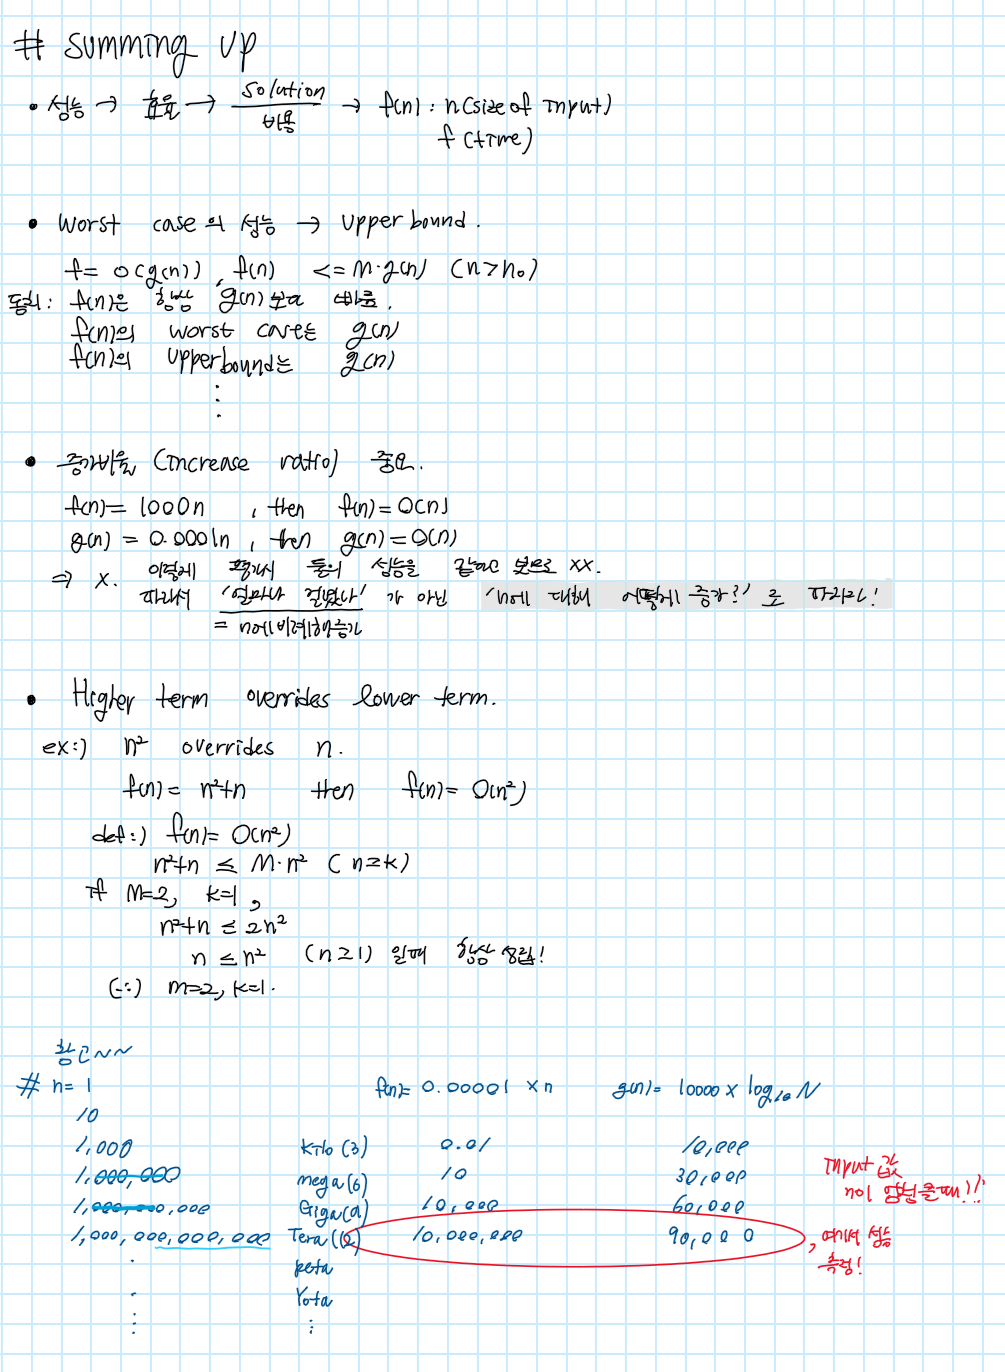 # Summing up
• 성능 → 효율 → solution / 비용 → f(n) : n (size of input)
f (time)
• Worst case의 성능 → upper bound.
f = O(g(n)), f(n) <= M·g(n) (n>n₀)
동치: f(n)은 항상 g(n)보다 빠름.
f(n)의 worst case는 g(n)
f(n)의 upper bound는 g(n)
⋮
• 증가비율 (increase ratio) 중요.
f(n) = 1000n , then f(n) = O(n)
g(n) = 0.0001n , then g(n) = O(n)
⇒ X. 이렇게 평가시 둘의 성능을 같다고 XX.
따라서 '얼마나 걸렸나' 가 아닌 'n에 대해 어떻게 증가?' 로 따지라!
= n에 비례해 증가
• Higher term overrides lower term.
ex:) n² overrides n.
f(n) = n²+n then f(n) = O(n²)
def:) f(n) = O(n²)
n²+n ≤ M·n² (n≥k)
if M=2, k=1,
n²+n ≤ 2n²
n ≤ n² (n≥1) 일때 항상 성립!
(∴) m=2, k=1.
참고~~
# n= 1 f(n)= 0.00001 × n g(n)= 10000 × log₁₀ N
10
1,000 Kilo (3) 0.01 10,000
1,000,000 mega (6) 10 30,000
1,000,000,000 Giga (9) 10,000 60,000
1,000,000,000,000 Tera (12) 10,000,000 90,000
peta
Yota
⋮
Input 값
n이 엄청 클때!!
, 여기서 성능
측정!